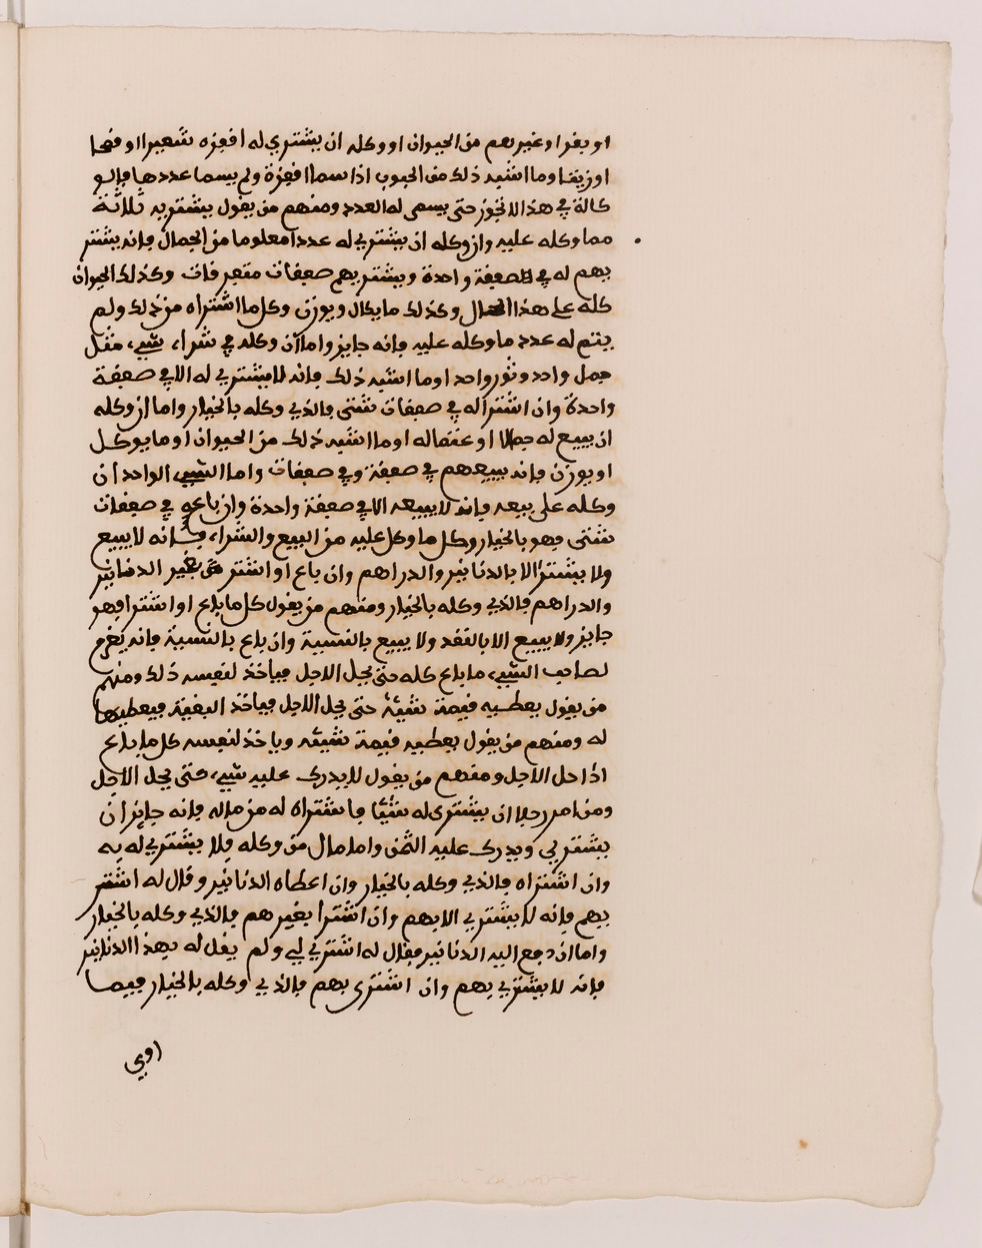 او بقرا وغيرهم من الحيوان او وكله ان يشتري له اقفزه شعيرا او قمحا
او زيتا وما اشبه ذلك من الحبوب اذا سما اقفزة ولم يسما عددها فالو
كالة في هذا لا تجوز حتى يسمى له العدد ومنهم من يقول يشتريه ثلاثة
مما وكله عليه وان وكله ان يشتري له عددا معلوما من الجمال فانه يشتر
يهم له في صفقة واحدة ويشتريهم صفقات متفرقات وكذلك الحيوان
كله على هذا الحال وكذلك ما يكال ويوزن وكل ما اشتراه من ذلك ولم
يتم له عدد ما وكله عليه فانه جايز واما ان وكله في شراء شيء مثل
جمل واحد وثور واحد او ما اشبه ذلك فانه لا يشتري له الا في صفقة
واحدة وان اشترا له في صفقات شتى فالذي وكله بالخيار واما ان وكله
ان يبيع له جمالا او غنما له او ما اشبه ذلك من الحيوان او ما يوكل
او يوزن فانه يبيعهم في صفقة وفي صفقات واما الشيء الواحد ان
وكله على بيعه فانه لا يبيعه الا في صفقة واحدة وان باعه في صفقات
شتى فهو بالخيار وكل ما وكل عليه من البيع والشراء فانه لا يبيع
ولا يشتر الا بالدنانير والدراهم وان باع او اشترى بغير الدنانير
والدراهم فالذي وكله بالخيار ومنهم من يقول كل ما باع او اشترا فهو
جايز ولا يبيع الا بالنقد ولا يبيع بالنسية وان باع بالنسية فانه يغرم
لصاحب الشيء ما باع كله حتى يحل الاجل فياخذ لنفسه ذلك ومنهم
من يقول يعطيه قيمة شيئه حتى يحل الاجل فياخذ البقية فيعطيها
له ومنهم من يقول يعطيه قيمة شيئه وياخذ لنفسه كل ما باع
اذا حل الاجل ومنهم من يقول لا يدرك عليه شيء حتى يحل الاجل
ومن امر رجلا ان يشتري له شيئا فاشتراه له من ماله فانه جايز ان
يشتري ويدرك عليه الثمن واما مال من وكله فلا يشتري له به
وان اشتراه فالذي وكله بالخيار وان اعطاه الدنانير وقال له اشتر
بهم فانه لا يشتري الا بهم وان اشترا بغيرهم فالذي وكله بالخيار
واما ان دفع اليه الدنانير فقال له اشتري لي ولم يقل له بهذا الدنانير
فانه لا يشتري بهم وان اشترى بهم فالذي وكله بالخيار فيما